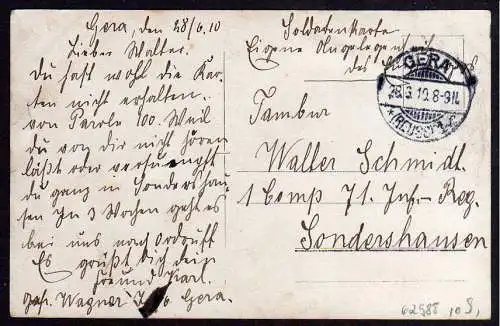 Gera, den 28/6.10
Lieber Walter.
Du hast wohl die Kar-
ten nicht erhalten.
von Parole 100. Weil
Du von dir nicht hören
läßt oder versumpft
du ganz in Sondershau-
sen In 3 Wochen geht es
bei uns nach Ordruff
Es grüßt dich dein
Freund Karl.
Wagner Gera.
Soldatenkarte
Eigene Angelegenheit
des
GERA
28.6.10.8-9N.
(REUSS)
Tambur
Walter Schmidt.
1 Comp 71. Inf.-Reg.
Sondershausen
62988